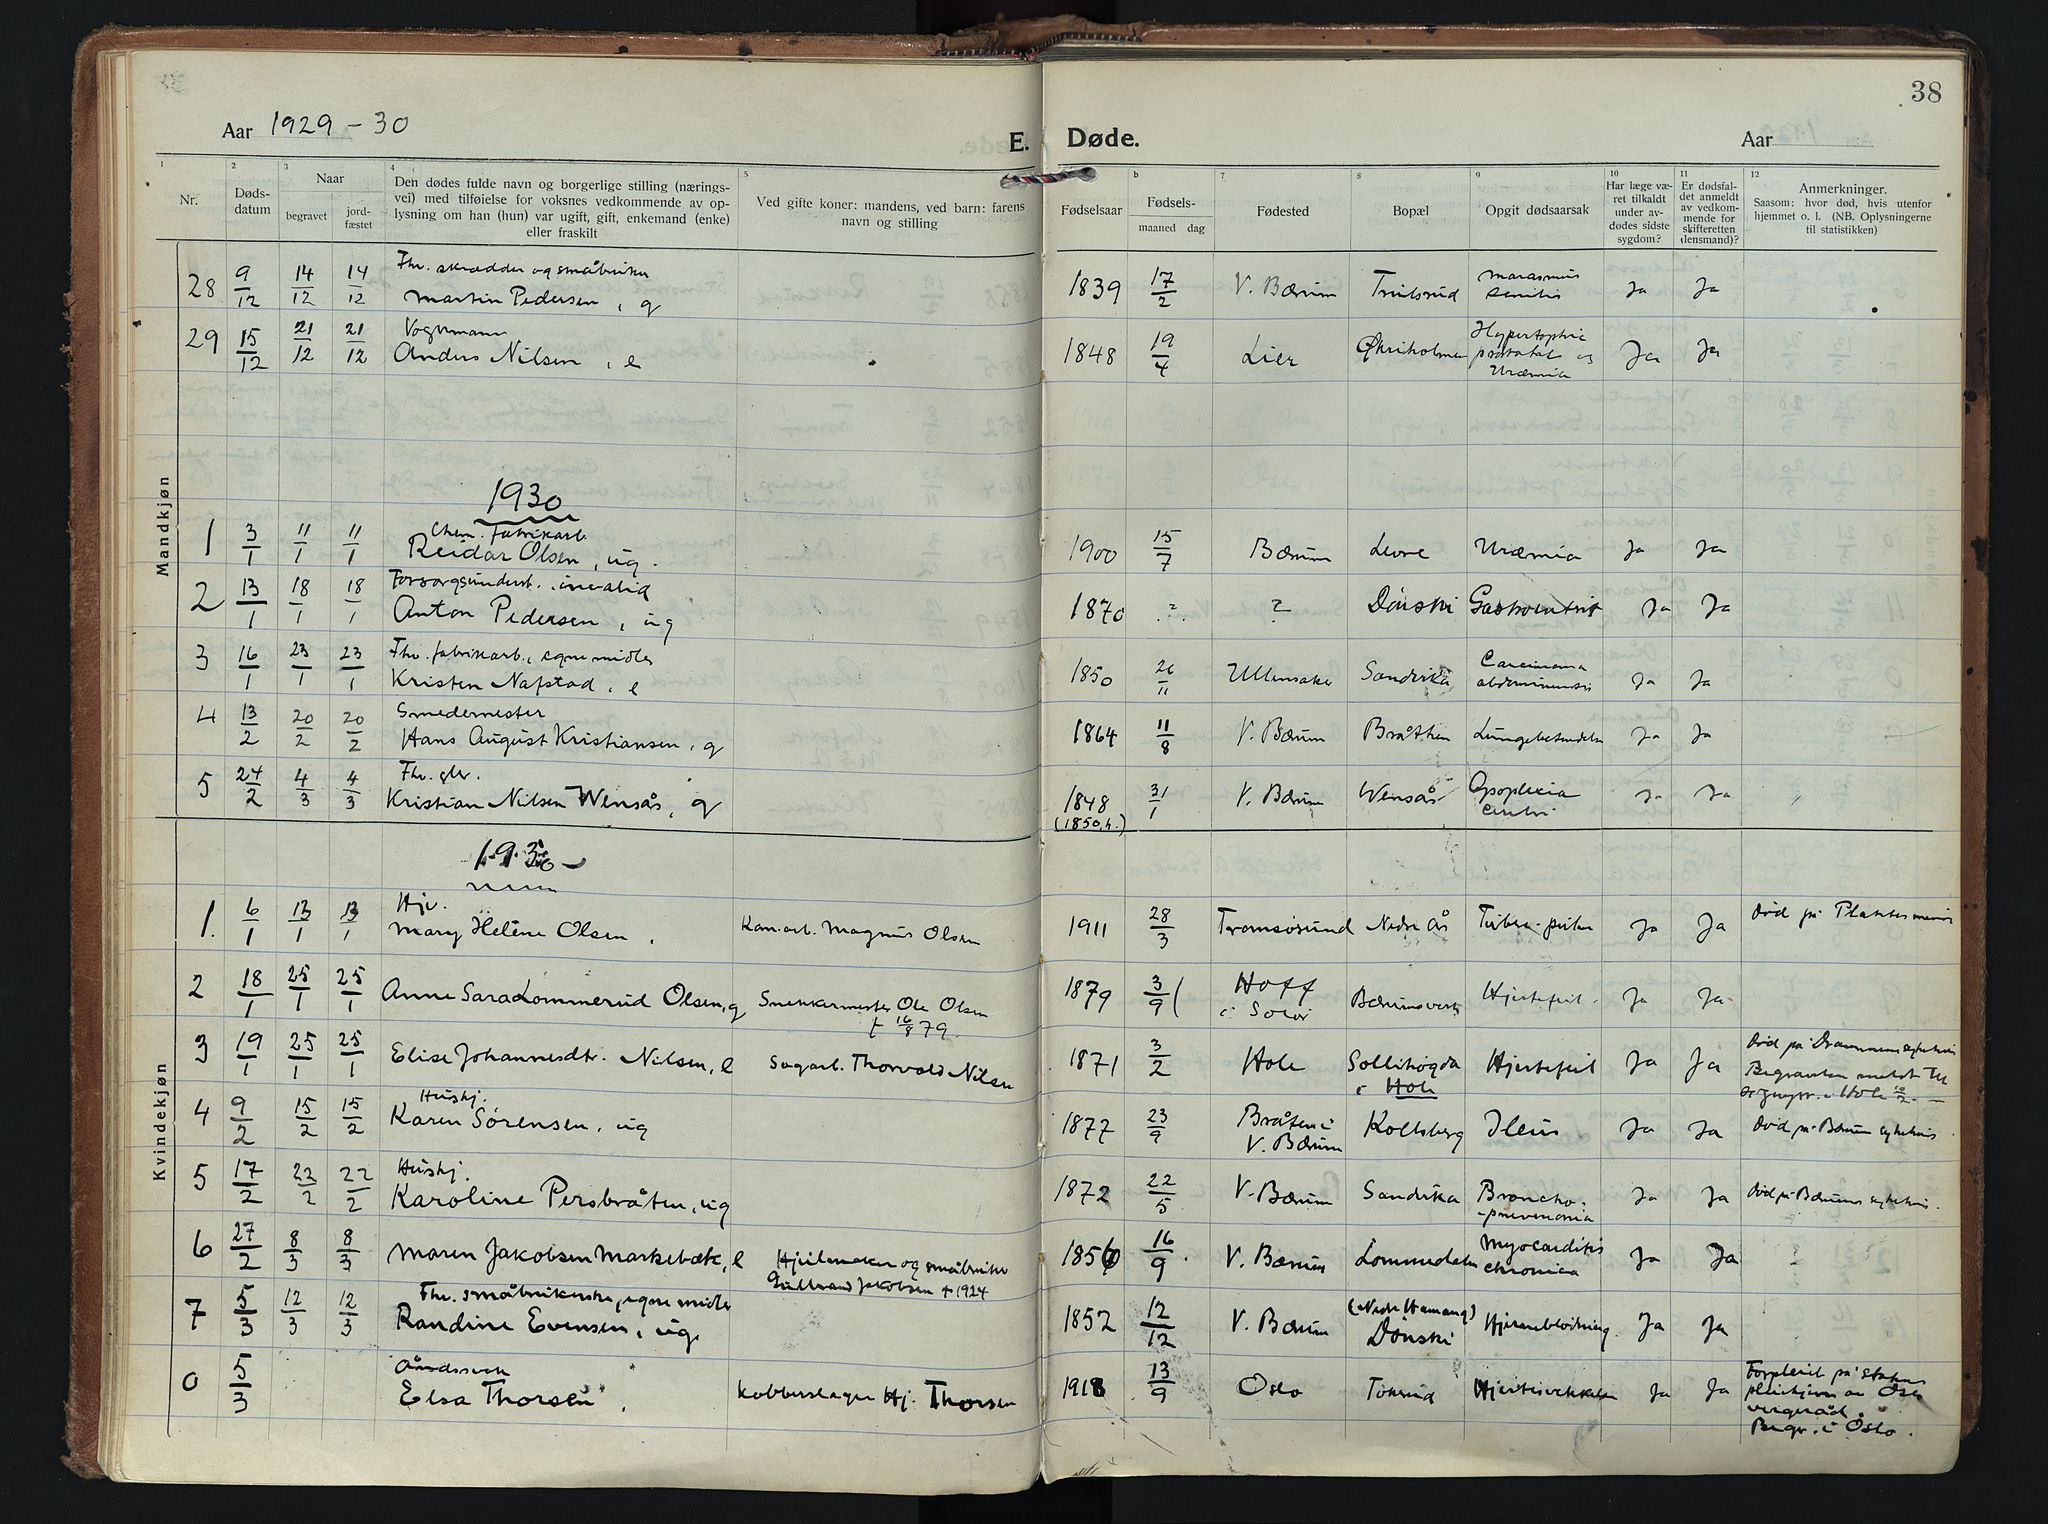 38
Aar 1929-30
E. Døde.
Aar
1 2 3 4 5 b 7 8 9 10 11 12
Nr.
Døds-
datum
Naar
begravet
jord-
fæstet
Den dødes fulde navn og borgerlige stilling (nærings-
vei) med tilføielse for voksnes vedkommende av op-
lysning om han (hun) var ugift, gift, enkemand (enke)
eller fraskilt
Ved gifte koner: mandens, ved barn: farens
navn og stilling
Fødselsaar
Fødsels-
maaned dag
Fødested
Bopæl
Opgit dødsaarsak
Har læge væ-
ret tilkaldt
under av-
dødes sidste
sygdom?
Er dødsfal-
det anmeldt
av vedkom-
mende for
skifteretten
(lensmand)?
Anmerkninger.
Saasom: hvor død, hvis utenfor
hjemmet o. l. (NB. Oplysningerne
til statistikken)
Mandkjøn
Fhv. skrædder og småbruker
28 9/12 14/12 14/12 Martin Pedersen, g 1839 17/2 V. Bærum Trulsrud marasmus senilis Ja Ja
Vognmann
29 15/12 21/12 21/12 Anders Nilsen, e 1848 19/4 Lier Hypertophie prostatae og Uræmia Ja Ja
1930
Chem. fabrikarb.
1 3/1 11/1 11/1 Reidar Olsen, ug. 1900 15/7 Bærum Levre Uræmia Ja Ja
Forsorgsunderst. invalid
2 13/1 18/1 18/1 Anton Pedersen, ug 1870 ? ? Dønski Gastroenterit Ja Ja
Fhv. fabrikarb., egne midler
3 16/1 23/1 23/1 Kristen Nafstad, e 1850 26/11 Ullensaker Sandvika Carcinoma abdominensis Ja Ja
Smedemester
4 13/2 20/2 20/2 Hans August Kristiansen, g 1864 11/8 V. Bærum Bråthen Lungebetendelse Ja Ja
Fhv. gbr.
5 24/2 4/3 4/3 Kristian Nilsen Wensås, g 1848 (1850, h.) 31/1 V. Bærum Wensås Apoplexia cerebri Ja Ja
Kvindekjøn
1930
Hjv.
1. 6/1 13/1 13/1 Mary Helene Olsen, Kom. arb. Magnus Olsen 1911 28/3 Tromsøsund Nedre Ås Ja Ja død på
2 18/1 25/1 25/1 Anne Sara Lommerud Olsen, g Snekkermester Ole Olsen + 16/8 79. 1879 3/9 Hoff i Solør Bærumsverk Hjertefeil Ja Ja
3 19/1 25/1 25/1 Elise Johannesdtr. Nilsen, e Sagarb. Thorvald Nilsen 1871 3/2 Hole Sollihøgda i Hole Hjertefeil Ja Ja død på Drammens sykehus Begravelsen meldt til sogneprr. i Hole 10/2
Hushj.
4 9/2 15/2 15/2 Karen Sørensen, ug 1877 23/9 Bråten i V. Bærum Kolsberg Ileus Ja Ja død på Bærum sykehus
Hushj.
5 17/2 22/2 22/2 Karoline Persbråten, ug 1872 22/5 V. Bærum Sandvika Broncho-pneumonia Ja Ja død på Bærums sykehus.
6 27/2 8/3 8/3 Maren Jakobsen Markebæk, e Hjulmaker og småbruker Gulbrand Jakobsen + 1924 1856 16/9 V. Bærum Lommedalen Myocarditis chronica Ja Ja
Fhv. småbrukerske, egne midler
7 5/3 12/3 12/3 Randine Evensen, ug. 1852 12/12 V. Bærum (Nedre Hamang) Dønski Hjerneblødning Ja Ja
Åndssvak
0 5/3 Elsa Thorsen, Kobberslager Hj. Thorsen 1918 13/9 Oslo Tokerud Ja Ja Forpleiet på statens pleiehjem av Oslo vergeråd Begr. i Oslo.